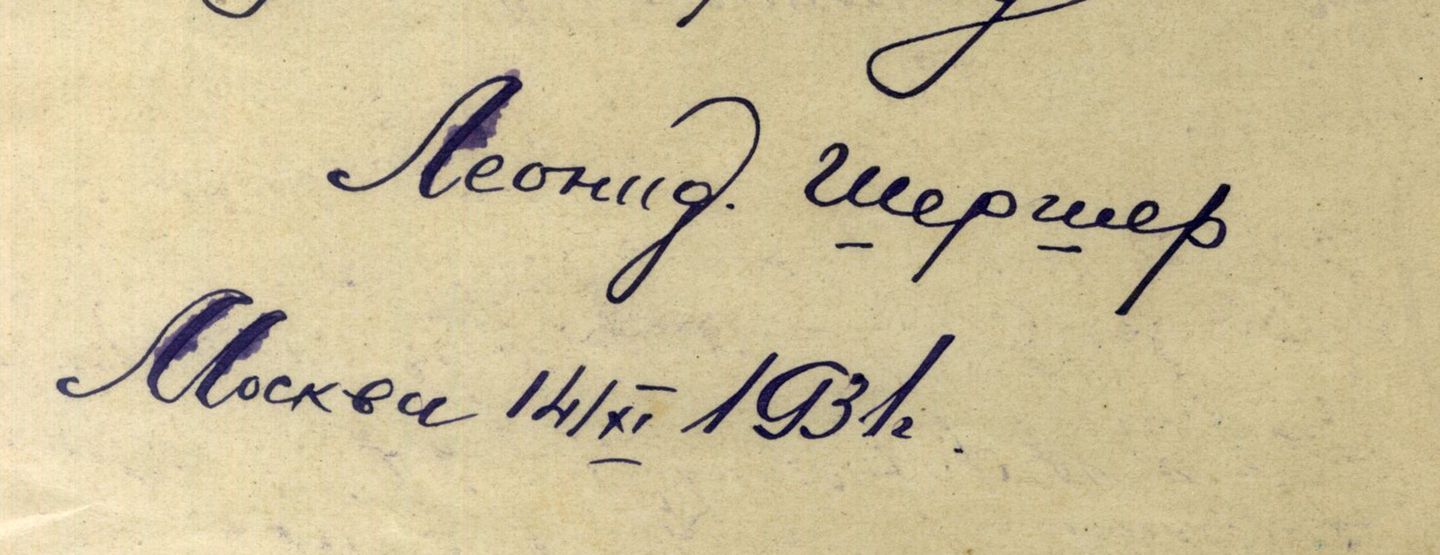 Леонид. Шершер
Москва 14/XI 1931г.